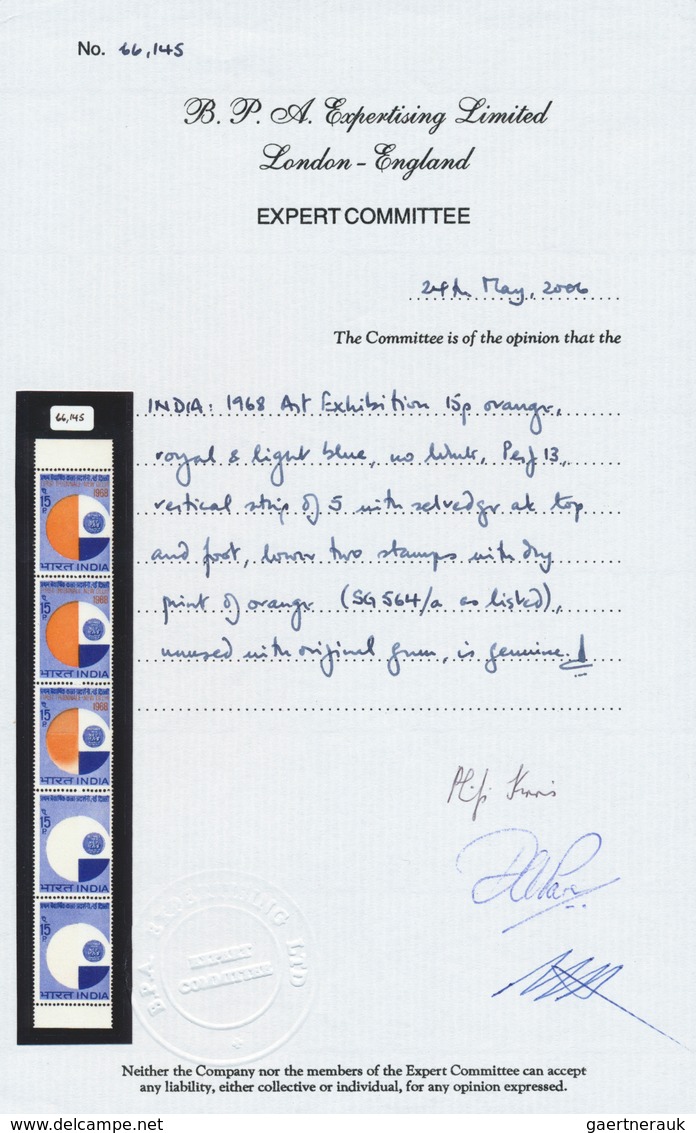 No. 66,145
B. P. A. Expertising Limited
London - England
EXPERT COMMITTEE
24th May, 2006
The Committee is of the opinion that the
66,145
INDIA: 1968 Art Exhibition 15p orange,
royal & light blue, no Wmk, Perf 13,
vertical strip of 5 with selvedge at top
and foot, lower two stamps with dry
print of orange (SG 564/a as listed),
unused with original gum, is genuine.
1968
15
भारत INDIA
1968
15
भारत INDIA
1968
15
भारत INDIA
15
भारत INDIA
15
भारत INDIA
B.P.A. EXPERTISING LTD
EXPERT
COMMITTEE
Neither the Company nor the members of the Expert Committee can accept
any liability, either collective or individual, for any opinion expressed.
www.delcampe.net
gaertnerauk